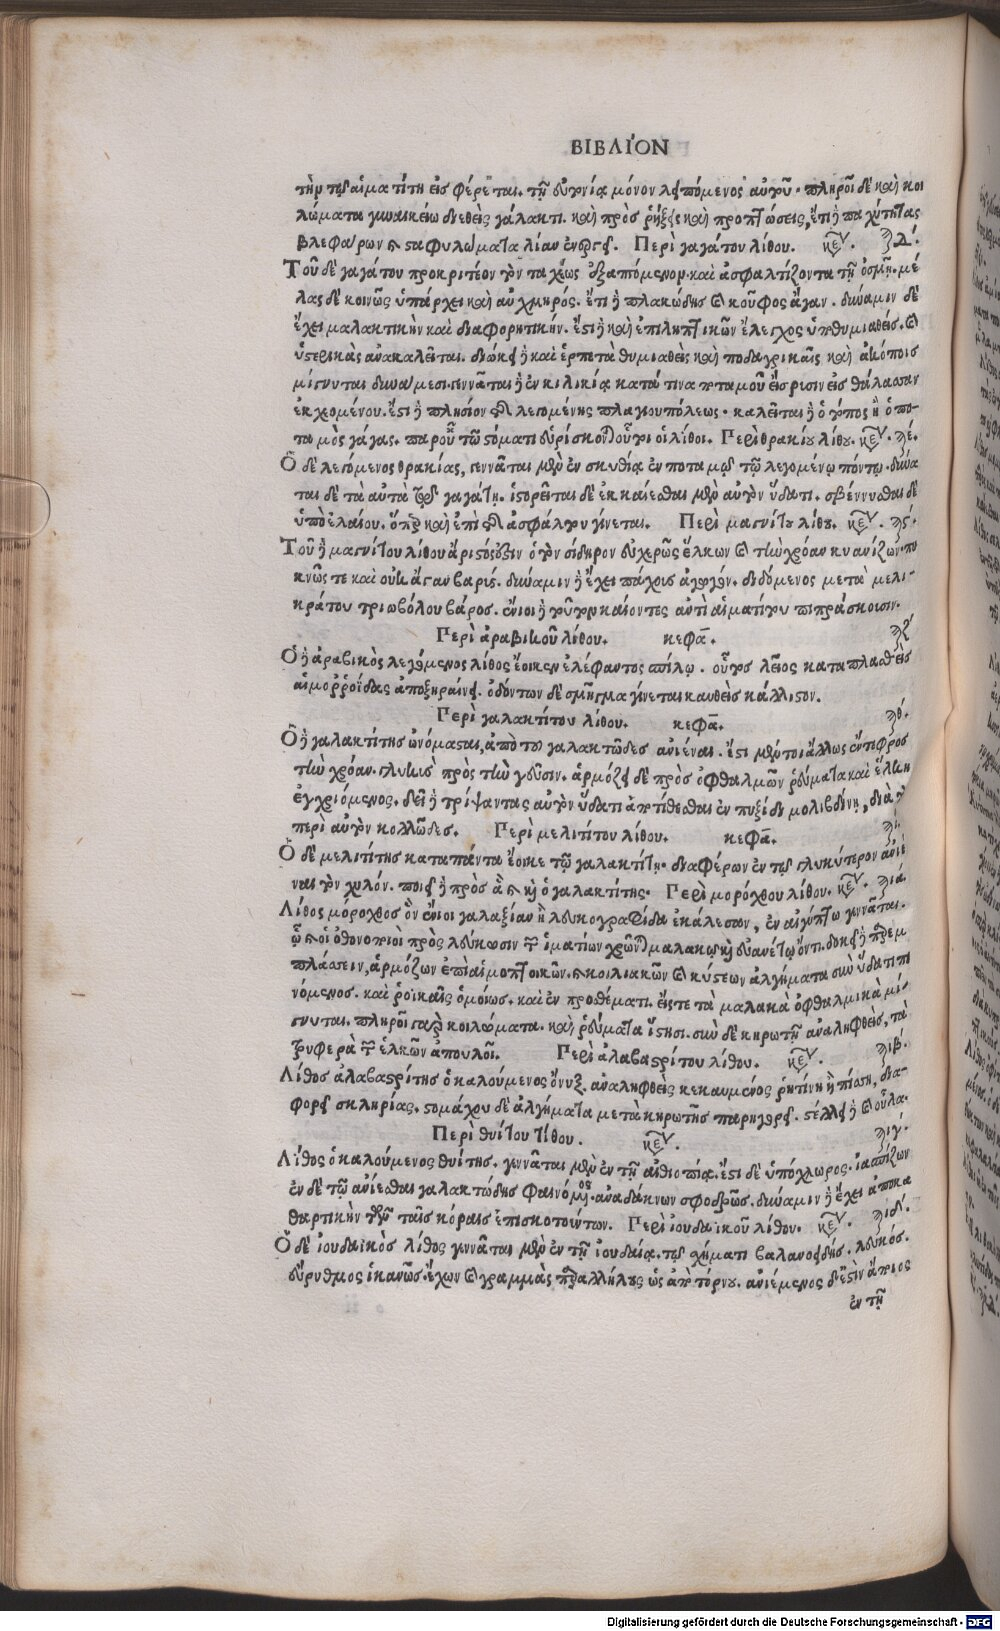 ΒΙΒΛΊΟΝ
τὴν τῷ αἱματίτῃ εἰσφέρεται. τῇ εὐτονίᾳ μόνον λειπόμενος αὐτοῦ. πληροῖ δὲ καὶ κοι
λώματα γυναικείῳ διεθεὶς γάλακτι. καὶ πρὸς ῥήξεις καὶ προπτώσεις, ἔτι ἢ παχύτητας
βλεφάρων καὶ σταφυλώματα λίαν ἐνεργεῖ. Περὶ γαγάτου λίθου. κεφ.
Τοῦ δὲ γαγάτου προκριτέον τὸν ταχέως ἐξαπτόμενον. καὶ ἀσφαλτίζοντα τῇ ὀσμῇ. μέ
λας δὲ κοινῶς ὑπάρχει καὶ αὐχμηρός. ἔτι ἢ πλακώδης καὶ κοῦφος ἄγαν. δύναμιν δὲ
ἔχει μαλακτικὴν καὶ διαφορητικήν. ἔστι ἢ καὶ ἐπιληπτικῶν ἔλεγχος ὑποθυμιαθείς. καὶ
ὑστερικὰς ἀνακαλεῖται. διώκει ἢ καὶ ἑρπετὰ θυμιαθεὶς καὶ ποδαγρικαῖς καὶ ἀκόποις
μίγνυται δυνάμεσι. γεννᾶται ἢ ἐν κιλικίᾳ κατά τινα ποταμοῦ εἴσρισιν εἰς θάλασσαν
ἐκχομένου. ἔστι ἢ πλησίον τῆς λεγομένης πλαγιουπόλεως. καλεῖται ἢ ὁ τόπος ἢ ὁ πο-
ταμὸς γάγας. παρ' οὗ τῷ στόματι εὑρίσκονται οὗτοι οἱ λίθοι. Περὶ θρακίου λίθου. κεφ. ϟε.
Ὁ δὲ λεγόμενος θρακίας, γεννᾶται μὲν ἐν σκυθίᾳ ἐν ποταμῷ τῷ λεγομένῳ πόντῳ. δύνα
ται δὲ τὰ αὐτὰ τῷ γαγάτῃ. ἱστορεῖται δὲ ἐκκαίεσθαι μὲν αὐτὸν ὕδατι. σβέννυσθαι δὲ
ὑπὸ ἐλαίου. ὅπερ καὶ ἐπὶ τῆς ἀσφάλτου γίνεται. Περὶ μαγνίτου λίθου. κεφ. ϟς.
Τοῦ ἢ μαγνίτου λίθου ἄριστός ἐστιν ὁ τὸν σίδηρον εὐχερῶς ἕλκων καὶ τὴν χρόαν κυανίζων. πυ
κνῶς τε καὶ οὐκ ἄγαν βαρύς. δύναμιν ἢ ἔχει πάχους ἀγωγόν. διδόμενος μετὰ μελι-
κράτου τριωβόλου βάρος. ἔνιοι ἢ τοῦτον καίοντες ἀντὶ αἱματίτου πιπράσκουσιν.
Περὶ ἀραβικοῦ λίθου. κεφά. ϟζ
Ὁ ἢ ἀραβικὸς λεγόμενος λίθος ἔοικεν ἐλέφαντος σπίλῳ. οὗτος λεῖος καταπλασθεὶς
αἱμορῥοΐδας ἀποξηραίνει. ὀδόντων δὲ σμῆγμα γίνεται καυθεὶς κάλλιστον.
Περὶ γαλακτίτου λίθου. κεφά. ϟθ.
Ὁ ἢ γαλακτίτης ὠνόμασται, ἀπὸ τοῦ γαλακτῶδες ἀνιέναι. ἔστι μέντοι ἄλλως ἔντιφρος
τὴν χρόαν. γλυκὺς πρὸς τὴν γεῦσιν. ἁρμόζει δὲ πρὸς ὀφθαλμῶν ῥεύματα καὶ ἕλκη
ἐγχριόμενος. δεῖ ἢ τρίψαντας αὐτὸν ὕδατι ἀποτίθεσθαι ἐν πυξίδι μολιβδίνῃ, διὰ τὸ
περὶ αὐτὸν κολλῶδες. Περὶ μελιτίτου λίθου. κεφά.
Ὁ δὲ μελιτίτης κατὰ πάντα ἔοικε τῷ γαλακτίτῃ. διαφέρων ἐν τῷ γλυκύτερον ἀνιέ
ναι τὸν χυλόν. ποιεῖ ἢ πρὸς ἃ καὶ ὁ γαλακτίτης. Περὶ μορόχθου λίθου. κεφ. ϟια.
Λίθος μόροχθος ὃν ἔνιοι γαλαξίαν ἢ λευκογραφίδα ἐκάλεσαν, ἐν αἰγύπτῳ γεννᾶται.
ᾧ καὶ οἱ ὀθονοποιοὶ πρὸς λεύκωσιν τῶν ἱματίων χρῶνται μαλακῷ καὶ εὐανέτῳ ὄντι. δοκεῖ ἢ παρεμ
πλάσσειν, ἁρμόζων ἐπὶ αἱμοπτοικῶν. καὶ κοιλιακῶν καὶ κύστεων ἀλγήματα σὺν ὕδατι πι
νόμενος. καὶ ῥοϊκαῖς ὁμοίως. καὶ ἐν προσθέματι. εἴς τε τὰ μαλακὰ ὀφθαλμικὰ μί-
γνυται. πληροῖ γὰρ κοιλώματα. καὶ ῥεύματα ἵστησι. σὺν δὲ κηρωτῇ ἀναληφθεὶς, τὰ
τρυφερὰ τῶν ἑλκῶν ἀπουλοῖ. Περὶ ἀλαβαστρίτου λίθου. κεφ. ϟιβ.
Λίθος ἀλαβαστρίτης ὁ καλούμενος ὄνυξ. ἀναληφθεὶς κεκαυμένος ῥητίνῃ ἢ πίσσῃ, δια-
φορεῖ σκληρίας. στομάχου δὲ ἀλγήματα μετὰ κηρωτῆς παρηγορεῖ. στέλλει ἢ καὶ οὖλα.
Περὶ θυίτου λίθου. κεφ. ϟιγ.
Λίθος ὁ καλούμενος θυίτης. γεννᾶται μὲν ἐν τῇ αἰθιοπίᾳ. ἔστι δὲ ὑπόχλωρος. ἰασπίζων
ἐν δὲ τῷ ἀνίεσθαι γαλακτώδης φαινόμενος. ἀναδάκνων σφοδρῶς. δύναμιν ἢ ἔχει ἀποκα
θαρτικὴν τῶν ταῖς κόραις ἐπισκοτούντων. Περὶ ἰουδαϊκοῦ λίθου. κεφ. ϟιδ.
Ὁ δὲ ἰουδαϊκὸς λίθος γεννᾶται μὲν ἐν τῇ ἰουδαίᾳ. τῷ σχήματι βαλανοειδής. λευκός.
εὔρυθμος ἱκανῶς. ἔχων καὶ γραμμὰς παραλλήλους ὡς ἀπὸ τόρνου. ἀνιέμενος δέ ἐστιν ἄποιος
ἐν τῇ
Digitalisierung gefördert durch die Deutsche Forschungsgemeinschaft - DFG